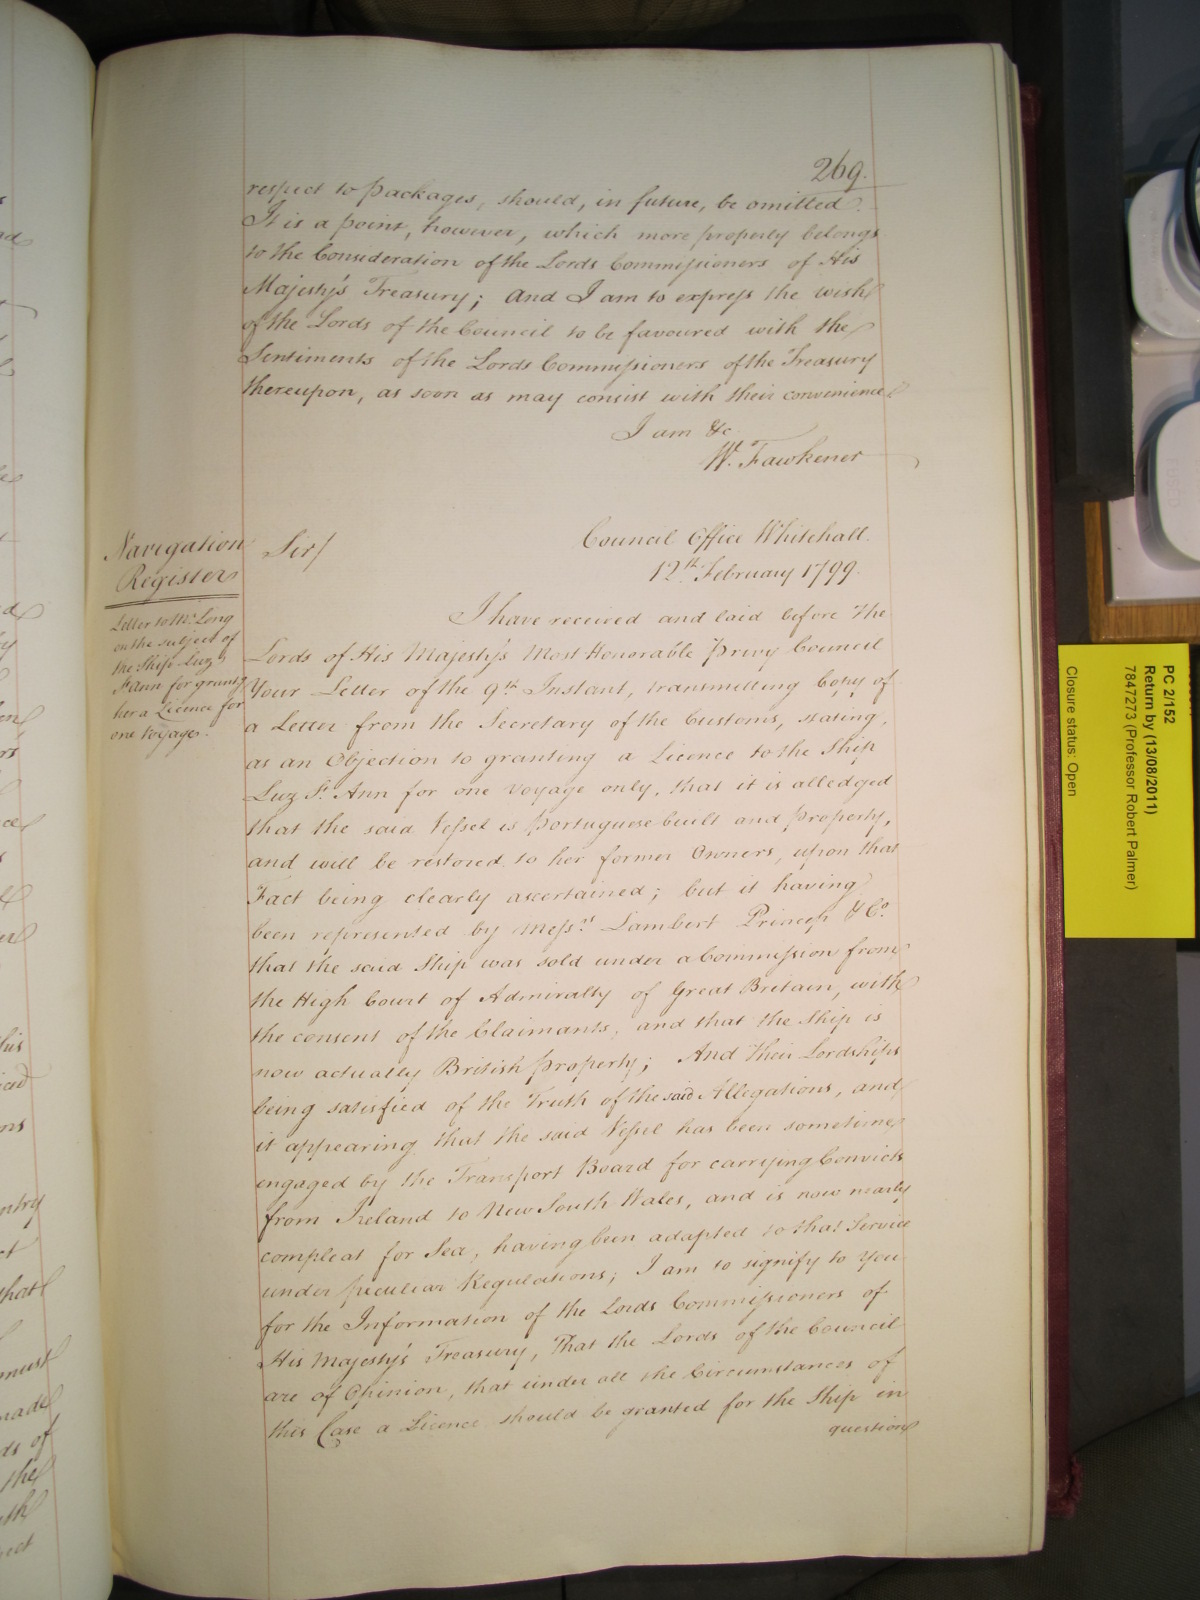 269.
respect to Packages, should, in future, be omitted.
It is a point, however, which more properly belongs
to the Consideration of the Lords Commissioners of His
Majesty's Treasury; And I am to express the wish
of the Lords of the Council to be favoured with the
Sentiments of the Lords Commissioners of the Treasury
thereupon, as soon as may consist with their convenience
I am &c
W. Fawkener
Navigation
Register
Letter to Mr. Long
on the subject of
the Ship Luz
St. Ann for grantg.
her a Licence for
one Voyage.
Sir/
Council Office Whitehall.
12th. February 1799.
I have received and laid before the
Lords of His Majesty's Most Honorable Privy Council
Your Letter of the 9th. Instant, transmitting Copy of
a Letter from the Secretary of the Customs, stating,
as an Objection to granting a Licence to the Ship
Luz St. Ann for one Voyage only, that it is alledged
that the said Vessel is Portuguese built and property,
and will be restored to her former Owners, upon that
Fact being clearly ascertained; but it having
been represented by Messrs. Lambert Prinsep & Co.
that the said Ship was sold under a Commission from
the High Court of Admiralty of Great Britain, with
the consent of the Claimants, and that the Ship is
now actually British property; And their Lordships
being satisfied of the Truth of the said Allegations, and
it appearing that the said Vessel has been sometime
engaged by the Transport Board for carrying Convicts
from Ireland to New South Wales, and is now nearly
compleat for Sea, having been adapted to that Service
under peculiar Regulations; I am to signify to You
for the Information of the Lords Commissioners of
His Majesty's Treasury, That the Lords of the Council
are of Opinion, that under all the Circumstances of
this Case a Licence should be granted for the Ship in
question
PC 2/152
Return by (13/08/2011)
7847273 (Professor Robert Palmer)
Closure status: Open